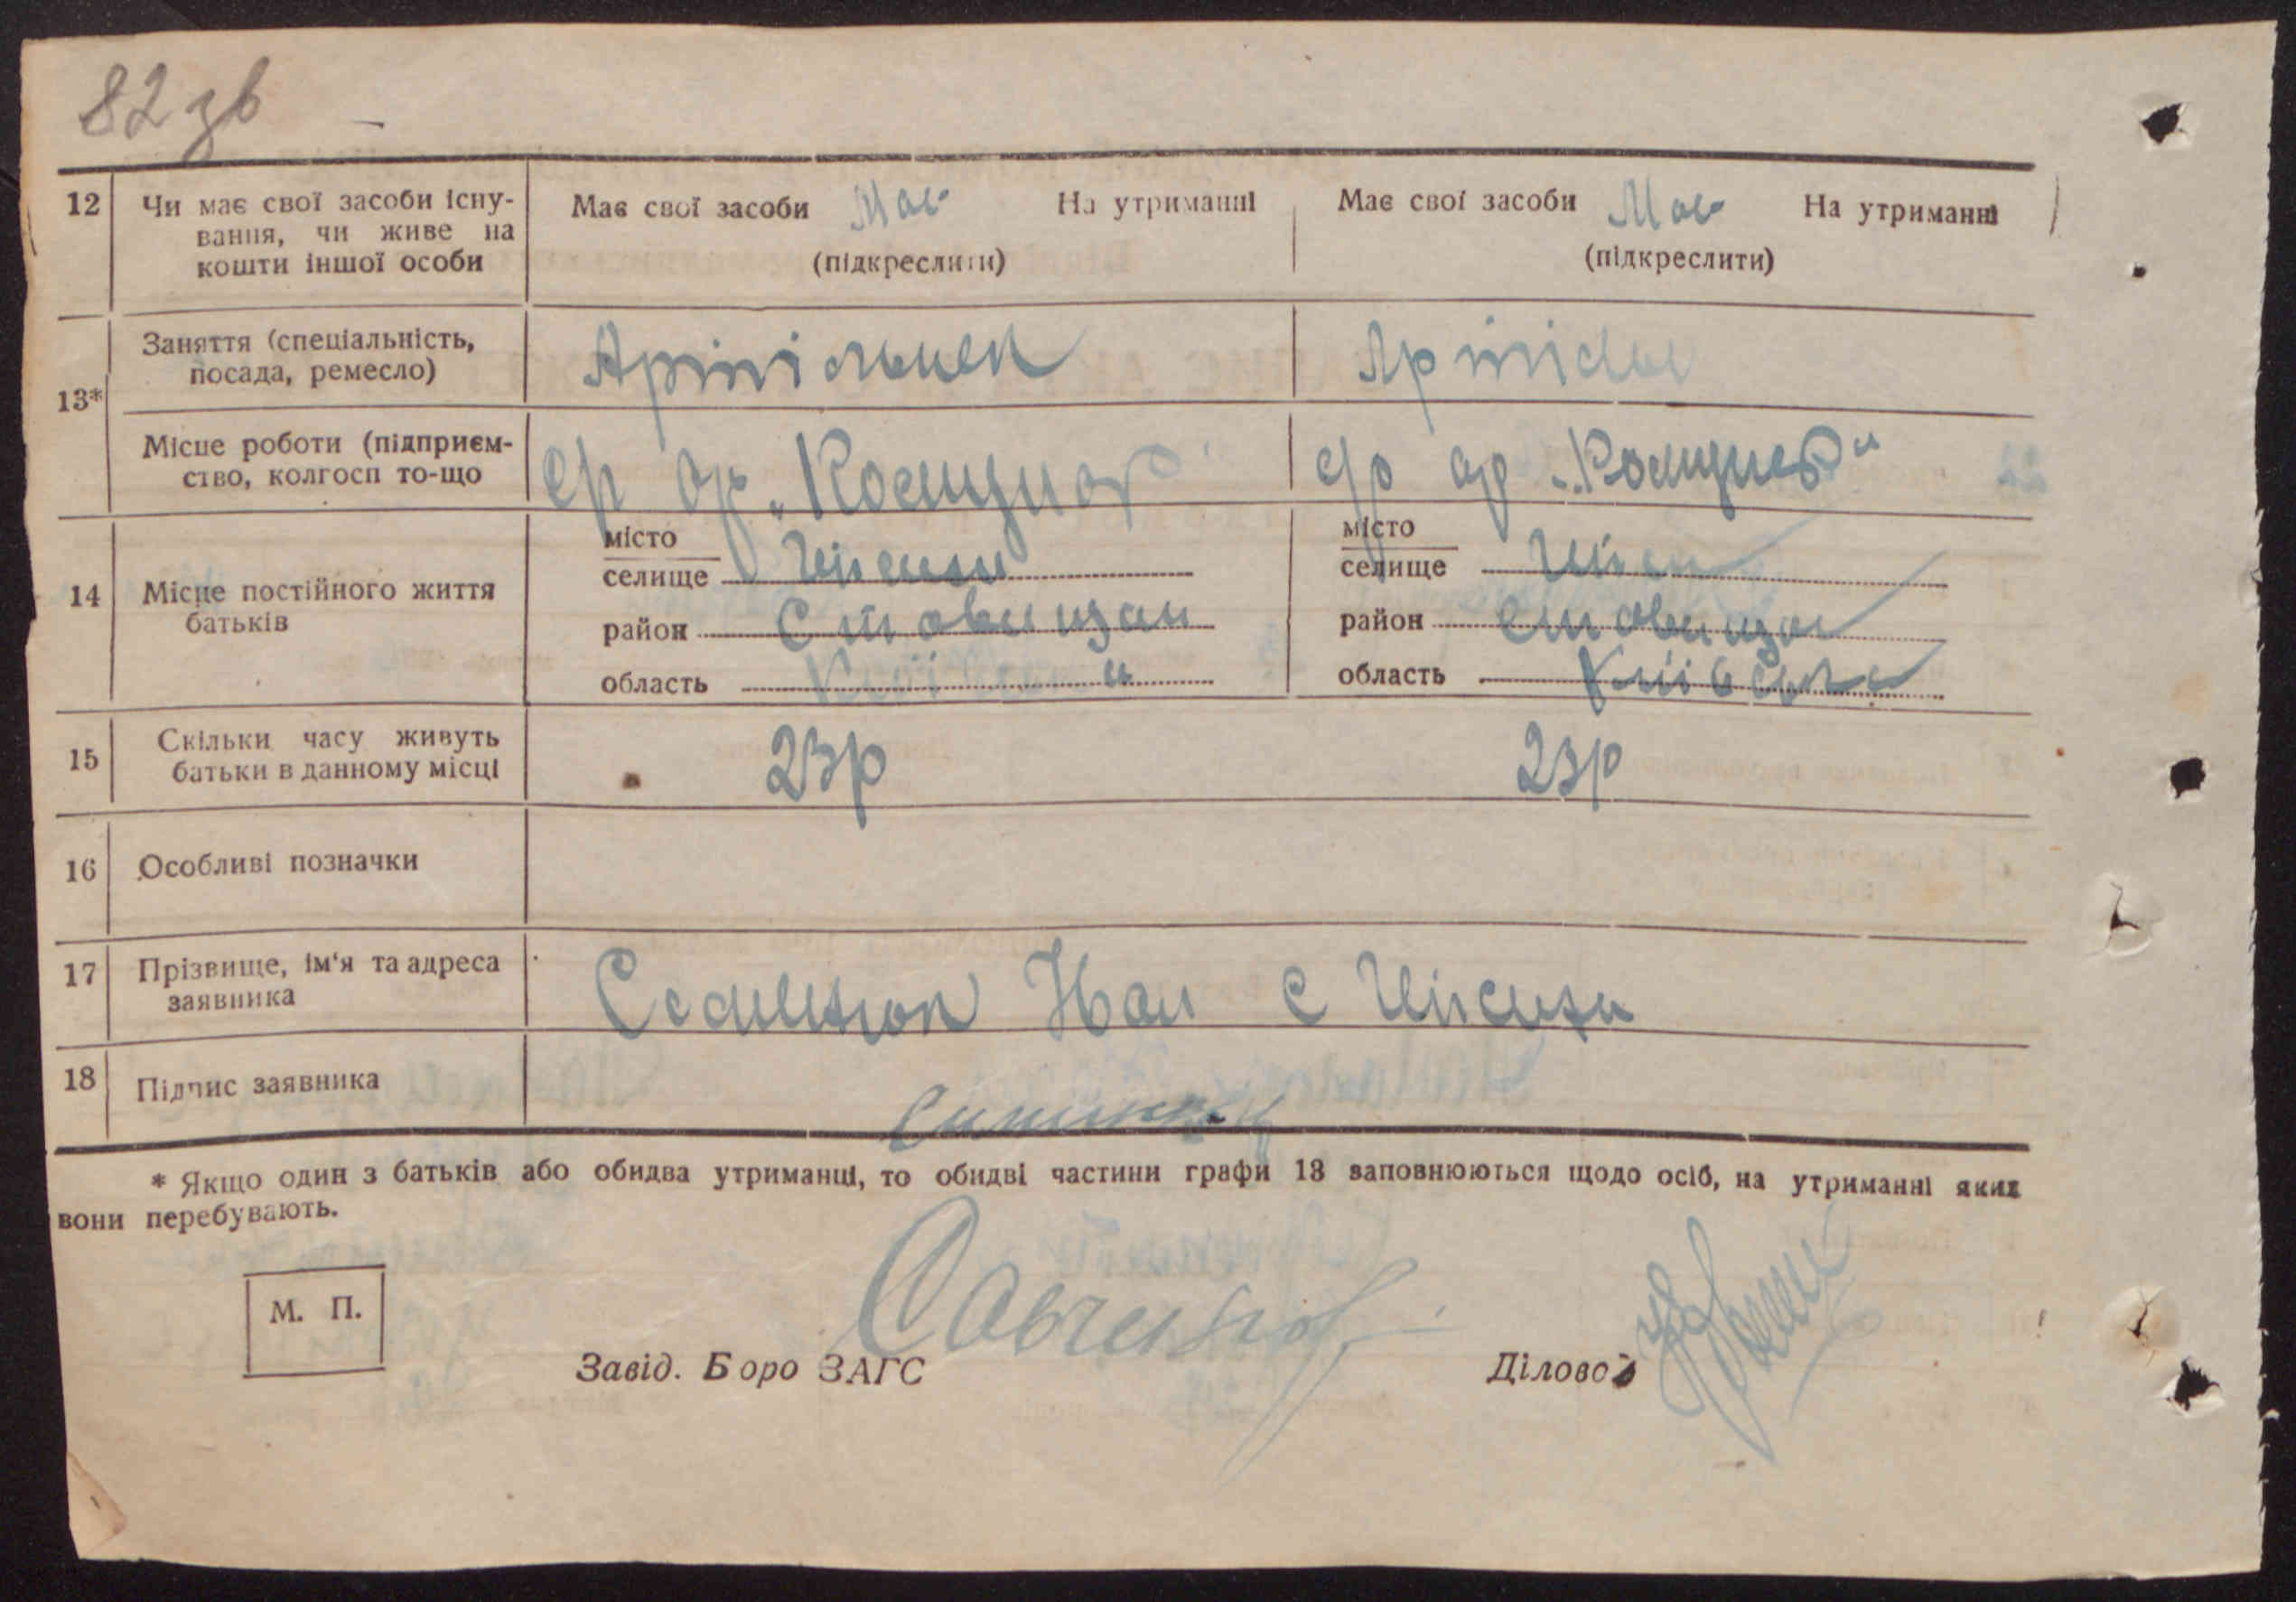 82 зв
12 Чи має свої засоби існу- Має свої засоби Має На утриманні Має свої засоби Має На утриманні
вання, чи живе на
кошти іншої особи (підкреслити) (підкреслити)
Заняття (спеціальність, Артільнек Артіль
посада, ремесло)
13*
Місце роботи (підприєм- с/г ар „Комунар с/г ар „Комунар"
ство, колгосп то-що
місто місто
селище селище
14 Місце постійного життя
батьків
район Ставищан район Ставищан
область Київська область Київська
15 Скільки часу живуть 23р 23р
батьки в данному місці
16 Особливі позначки
17 Прізвище, ім'я та адреса Іван с
заявника
18 Підпис заявника
* Якщо один з батьків або обидва утриманці, то обидві частини графи 13 заповнюються щодо осіб, на утриманні яких
вони перебувають.
М. П.
Завід. Бюро ЗАГС
Діловод